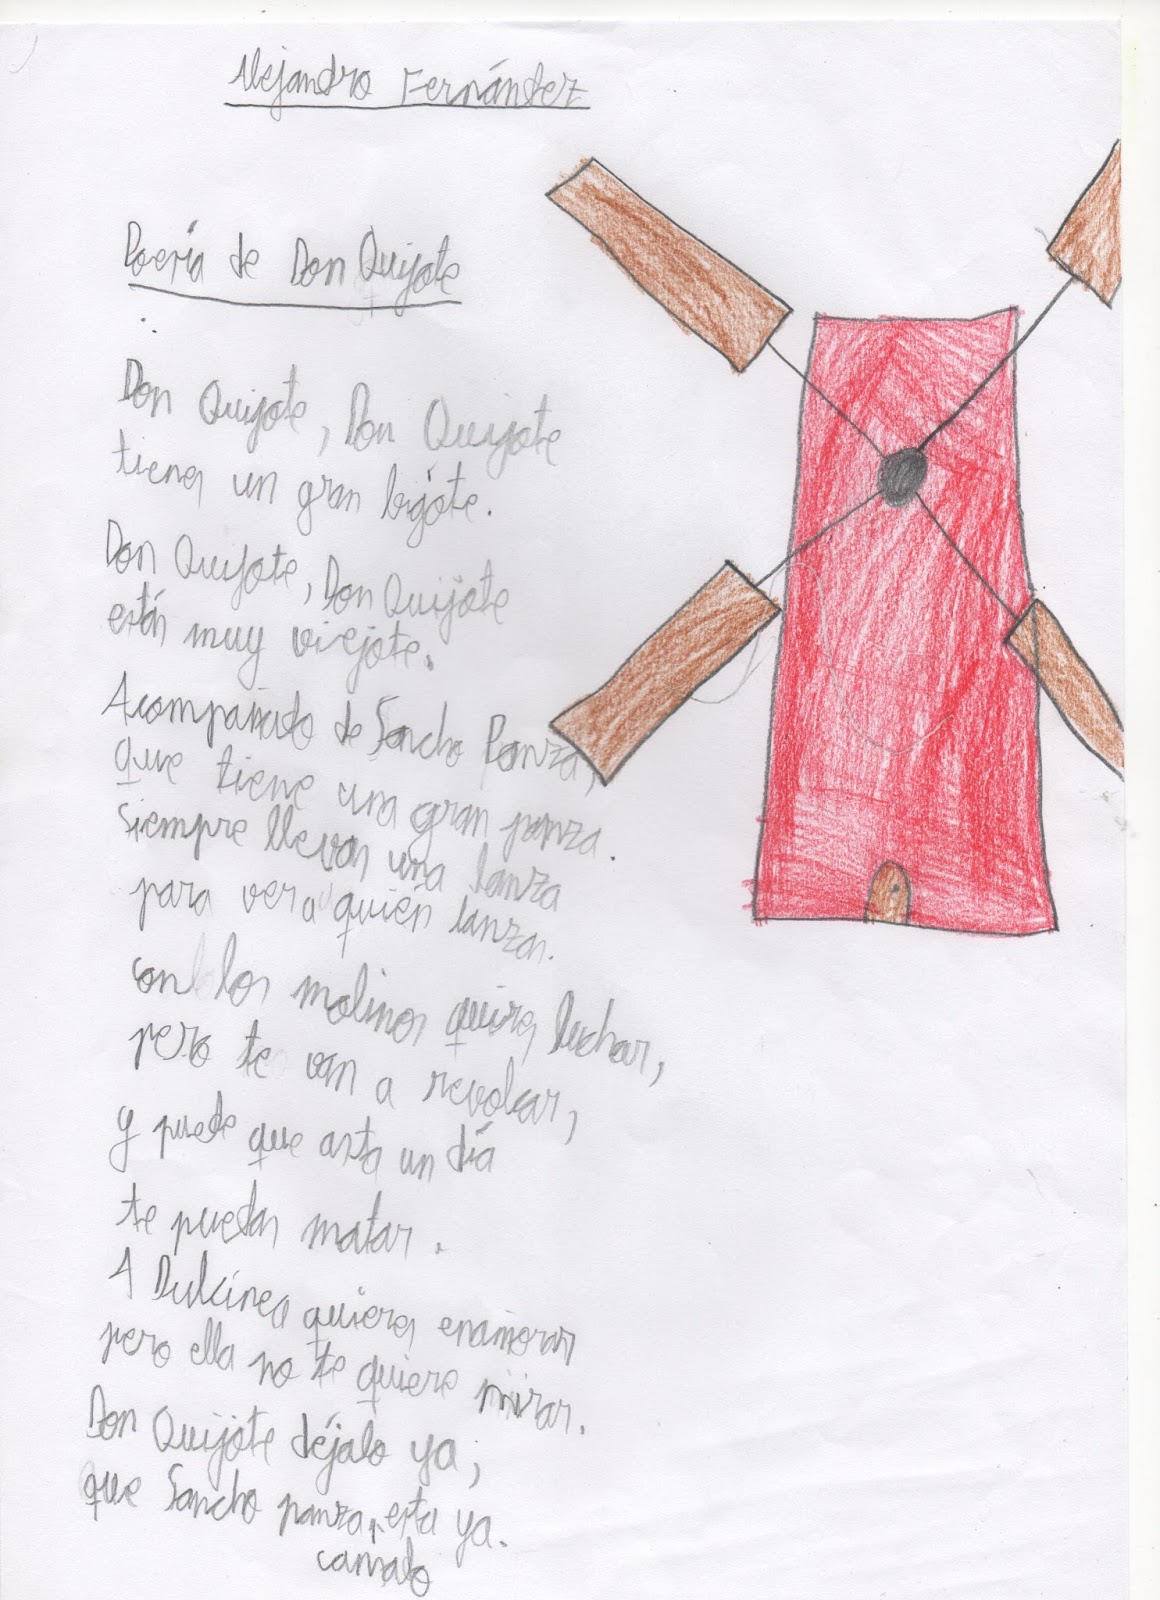 Alejandro Fernández
Poesía de Don Quijote
Don Quijote, Don Quijote
tienes un gran bigote.
Don Quijote, Don Quijote
estás muy viejote.
Acompañado de Sancho Panza,
que tiene una gran panza.
Siempre llevas una lanza
para ver a quién lanzas.
con los molinos quieres luchar,
pero te van a revolcar,
y puede que asta un día
te puedan matar.
A Dulcinea quieres enamorar
pero ella no te quiere mirar.
Don Quijote déjalo ya,
que Sancho panza, esta ya.
cansado